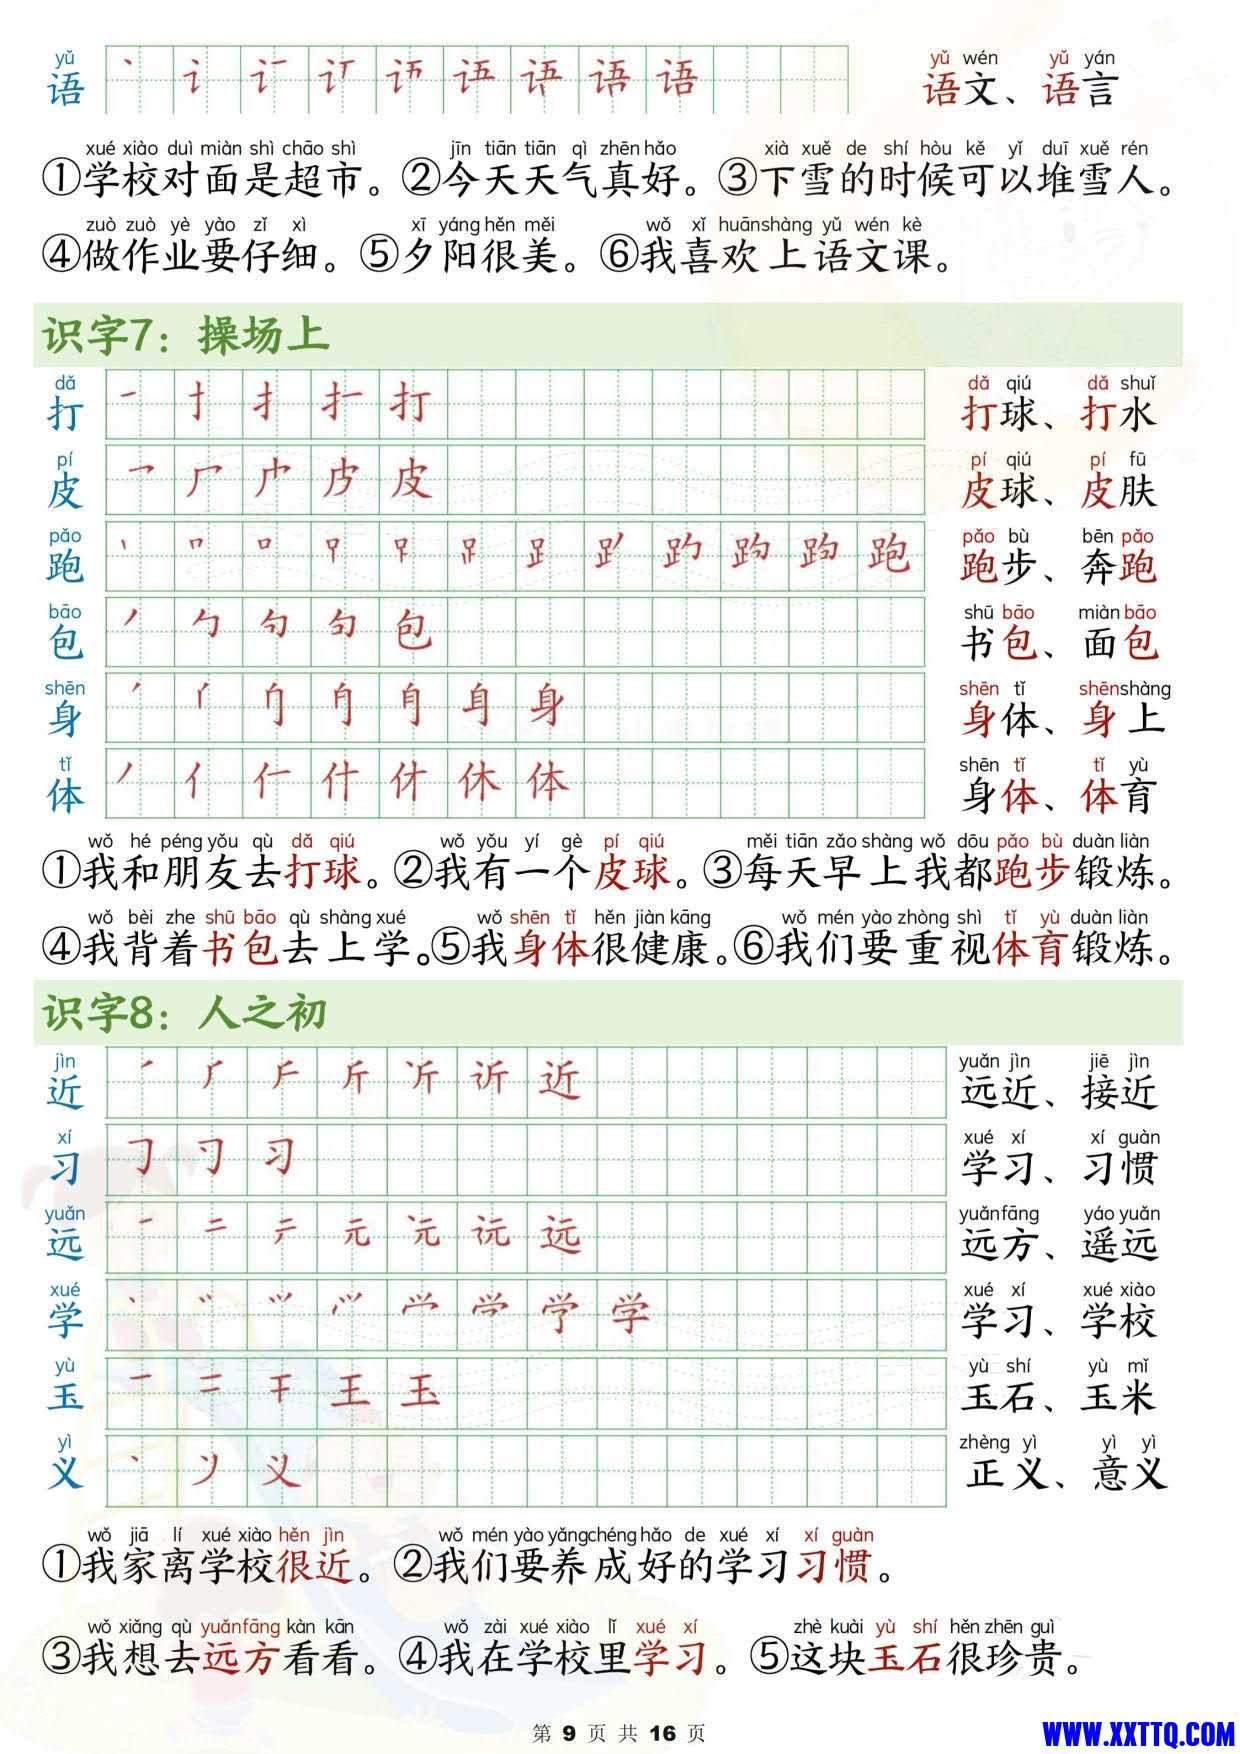 yǔ yǔ wén yǔ yán
语 语文、语言
xué xiào duì miàn shì chāo shì jīn tiān tiān qì zhēn hǎo xià xuě de shí hòu kě yǐ duī xuě rén
①学校对面是超市。②今天天气真好。③下雪的时候可以堆雪人。
zuò zuò yè yào zǐ xì xī yáng hěn měi wǒ xǐ huān shàng yǔ wén kè
④做作业要仔细。⑤夕阳很美。⑥我喜欢上语文课。
识字7：操场上
dǎ dǎ qiú dǎ shuǐ
打 打球、打水
pí pí qiú pí fū
皮 皮球、皮肤
pǎo pǎo bù bēn pǎo
跑 跑步、奔跑
bāo shū bāo miàn bāo
包 书包、面包
shēn shēn tǐ shēn shàng
身 身体、身上
tǐ shēn tǐ tǐ yù
体 身体、体育
wǒ hé péng yǒu qù dǎ qiú wǒ yǒu yí gè pí qiú měi tiān zǎo shàng wǒ dōu pǎo bù duàn liàn
①我和朋友去打球。②我有一个皮球。③每天早上我都跑步锻炼。
wǒ bèi zhe shū bāo qù shàng xué wǒ shēn tǐ hěn jiàn kāng wǒ mén yào zhòng shì tǐ yù duàn liàn
④我背着书包去上学。⑤我身体很健康。⑥我们要重视体育锻炼。
识字8：人之初
jìn yuǎn jìn jiē jìn
近 远近、接近
xí xué xí xí guàn
习 学习、习惯
yuǎn yuǎn fāng yáo yuǎn
远 远方、遥远
xué xué xí xué xiào
学 学习、学校
yù yù shí yù mǐ
玉 玉石、玉米
yì zhèng yì yì yì
义 正义、意义
wǒ jiā lí xué xiào hěn jìn wǒ mén yào yǎng chéng hǎo de xué xí xí guàn
①我家离学校很近。②我们要养成好的学习习惯。
wǒ xiǎng qù yuǎn fāng kàn kān wǒ zài xué xiào lǐ xué xí zhè kuài yù shí hěn zhēn guì
③我想去远方看看。④我在学校里学习。⑤这块玉石很珍贵。
第 9 页 共 16 页
WWW.XXTTQ.COM